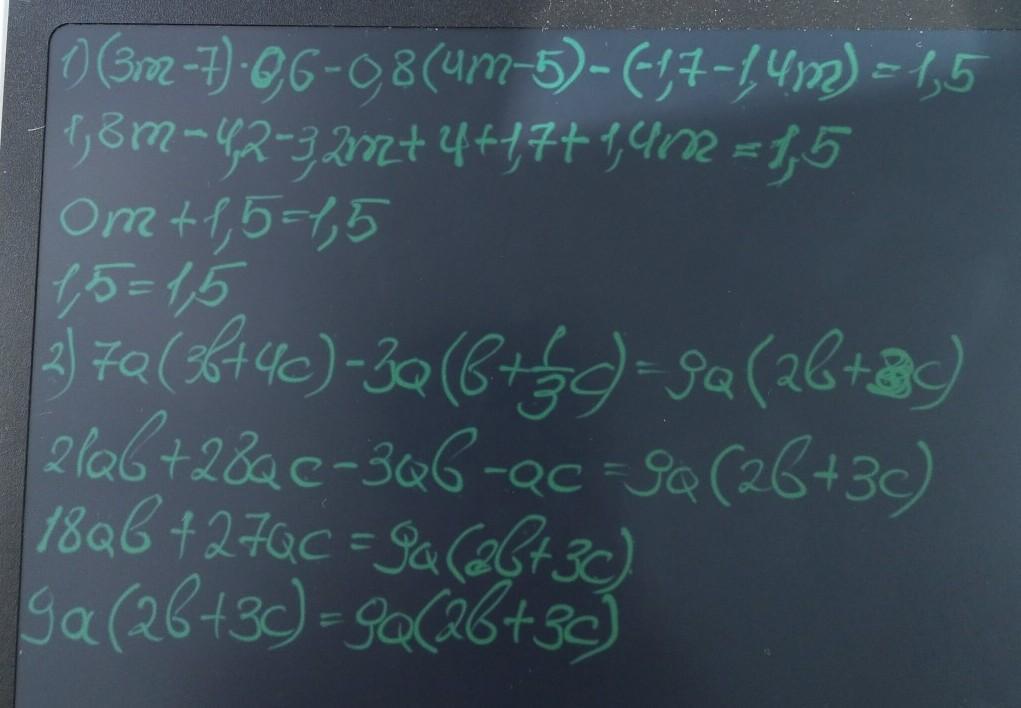 1) (3m-7)·0,6-0,8(4m-5)-(-1,7-1,4m)=1,5
1,8m-4,2-3,2m+4+1,7+1,4m=1,5
0m+1,5=1,5
1,5=1,5
2) 7a(3b+4c)-3a(b+1/3c)=9a(2b+3c)
21ab+28ac-3ab-ac=9a(2b+3c)
18ab+27ac=9a(2b+3c)
9a(2b+3c)=9a(2b+3c)